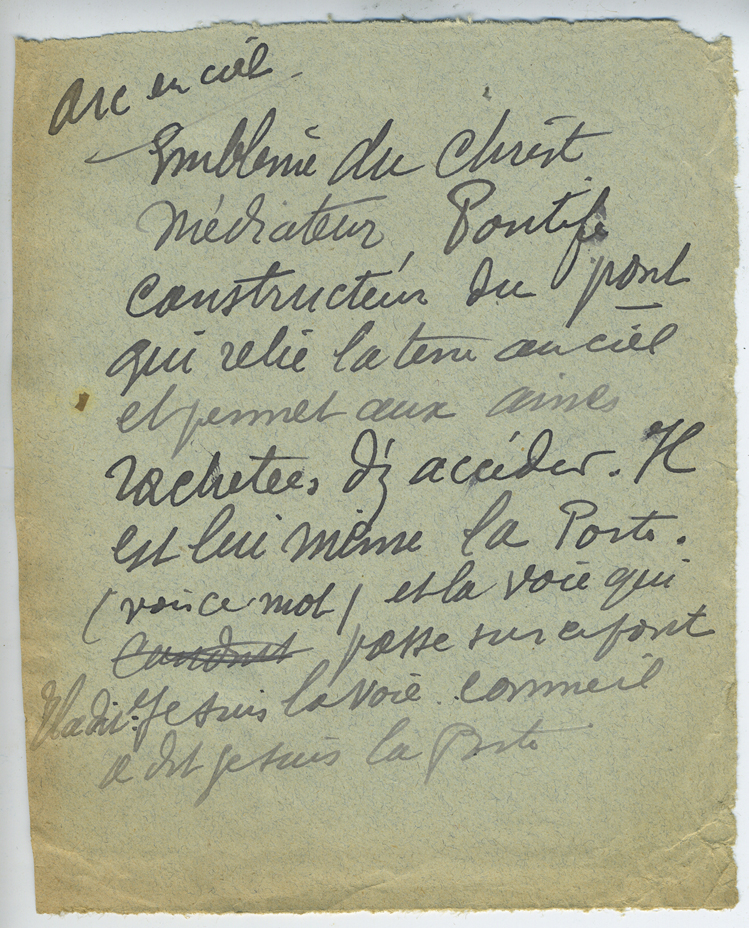 Arc en ciel.
Emblème du Christ
Médiateur, Pontife
constructeur du pont
qui relie la terre au ciel
et permet aux âmes
rachetées d'y accéder. Il
est lui même la Porte.
(voir ce mot) et la voie qui
passe sur ce pont
Il a dit: Je suis la voie. comme il
a dit je suis la Porte